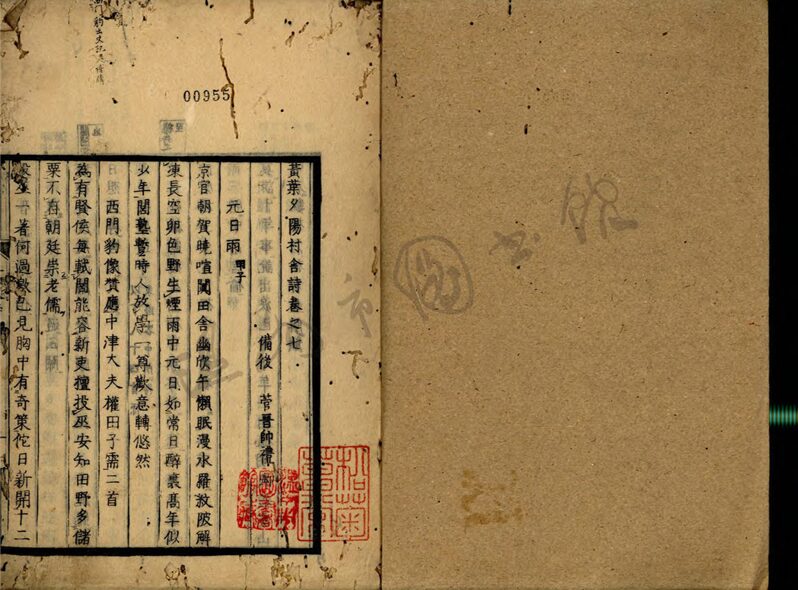 00955
黃葉夕陽村舍詩卷之七
備後 菅晋帥禮
元日雨 甲子
京官朝賀曉喧闐田舍幽欣午懶眠漫水羅紋陂解
凍長空卵色野生煙雨中元日如常日醉裏高年似
少年閣塾整時人放學一尊歡意轉悠然
西門豹像贊應中津大夫權田子需二首
為有賢侯每軾閭能容新吏擅投巫安知田野多儲
粟不在朝廷崇老儒
一著何過激已見胸中有奇策佗日新開十二